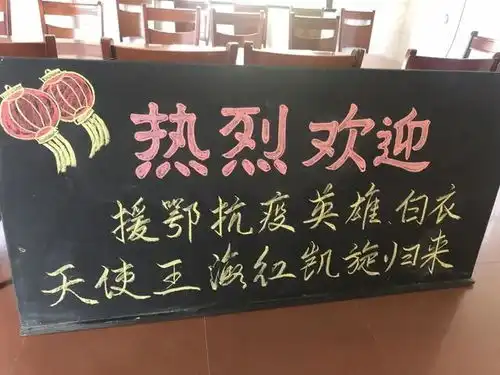 热烈欢迎
援鄂抗疫英雄、白衣
天使王海红凯旋归来